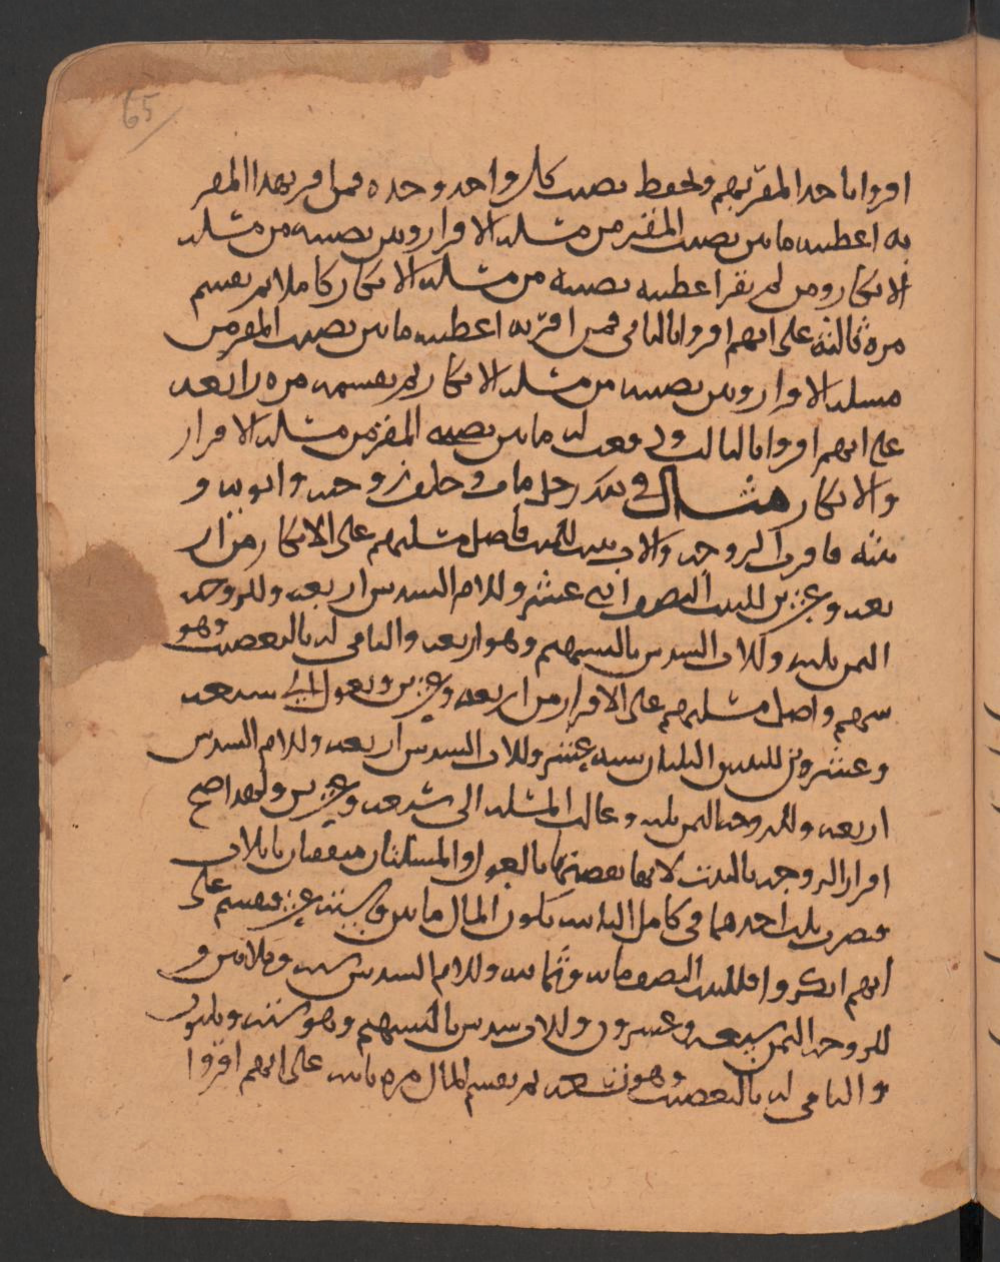 65
اقروا باحد المقر بهم ويحفظ نصيب كل واحد وحده فمن اقر بهذا المقر
به اعطيته ما بين نصيب المقر من مسئلة الاقرار وبين نصيبه من مسئلة
الانكار ومن لم يقر اعطيه نصيبه من مسئلة الانكار كاملا ثم يقسم
مرة ثالثة على انهم اقروا بالثاني فمن اقر به اعطيته ما بين نصيب المقر من
مسئلة الاقرار وبين نصيبه من مسئلة الانكار ثم يقسمه مرة رابعة
على انهم اقروا بالثالث ودفعت له ما بين نصيبه المقر من مسئلة الاقرار
والانكار مثال في بعد رجل مات وخلف زوجة وابوين و
بنته فاقرت الزوجة والاب ببنت للميت فاصل مسئلتهم على الانكار من ار
بعة وعشرين للبنت النصف اثنى عشر وللام السدس اربعة وللزوجة
الثمن ثلثة وللاب السدس بالتسهيم وهو اربعة والباقى له بالتعصيب وهو
سهم واصل مسئلتهم على الاقرار من اربعة وعشرين وتعول الى سبعة
وعشرون للبنتين الثلثان ستة عشر وللاب السدس اربعة وللام السدس
اربعة وللزوجة الثمن ثلثة وعالت المسئلة الى سبعة وعشرين ولهذا صح
اقرار الزوجة بالبنت لانها نقصتها بالعول والمسئلتان متفقتان بالاثلاث
فضرب ثلث احدهما في كامل الثانية يكون المال مايتين وستة عشر فيقسم على
انهم انكروا فللبنت النصف ماية وثمانية وللام السدس ستة وثلاثين و
للزوجة الثمن سبعة وعشرون وللاب سدس بالتسهيم وهو ستة وثلثون
والباقى له بالتعصيب وهو تسعة ثم يقسم المال مرة ثانية على انهم اقروا